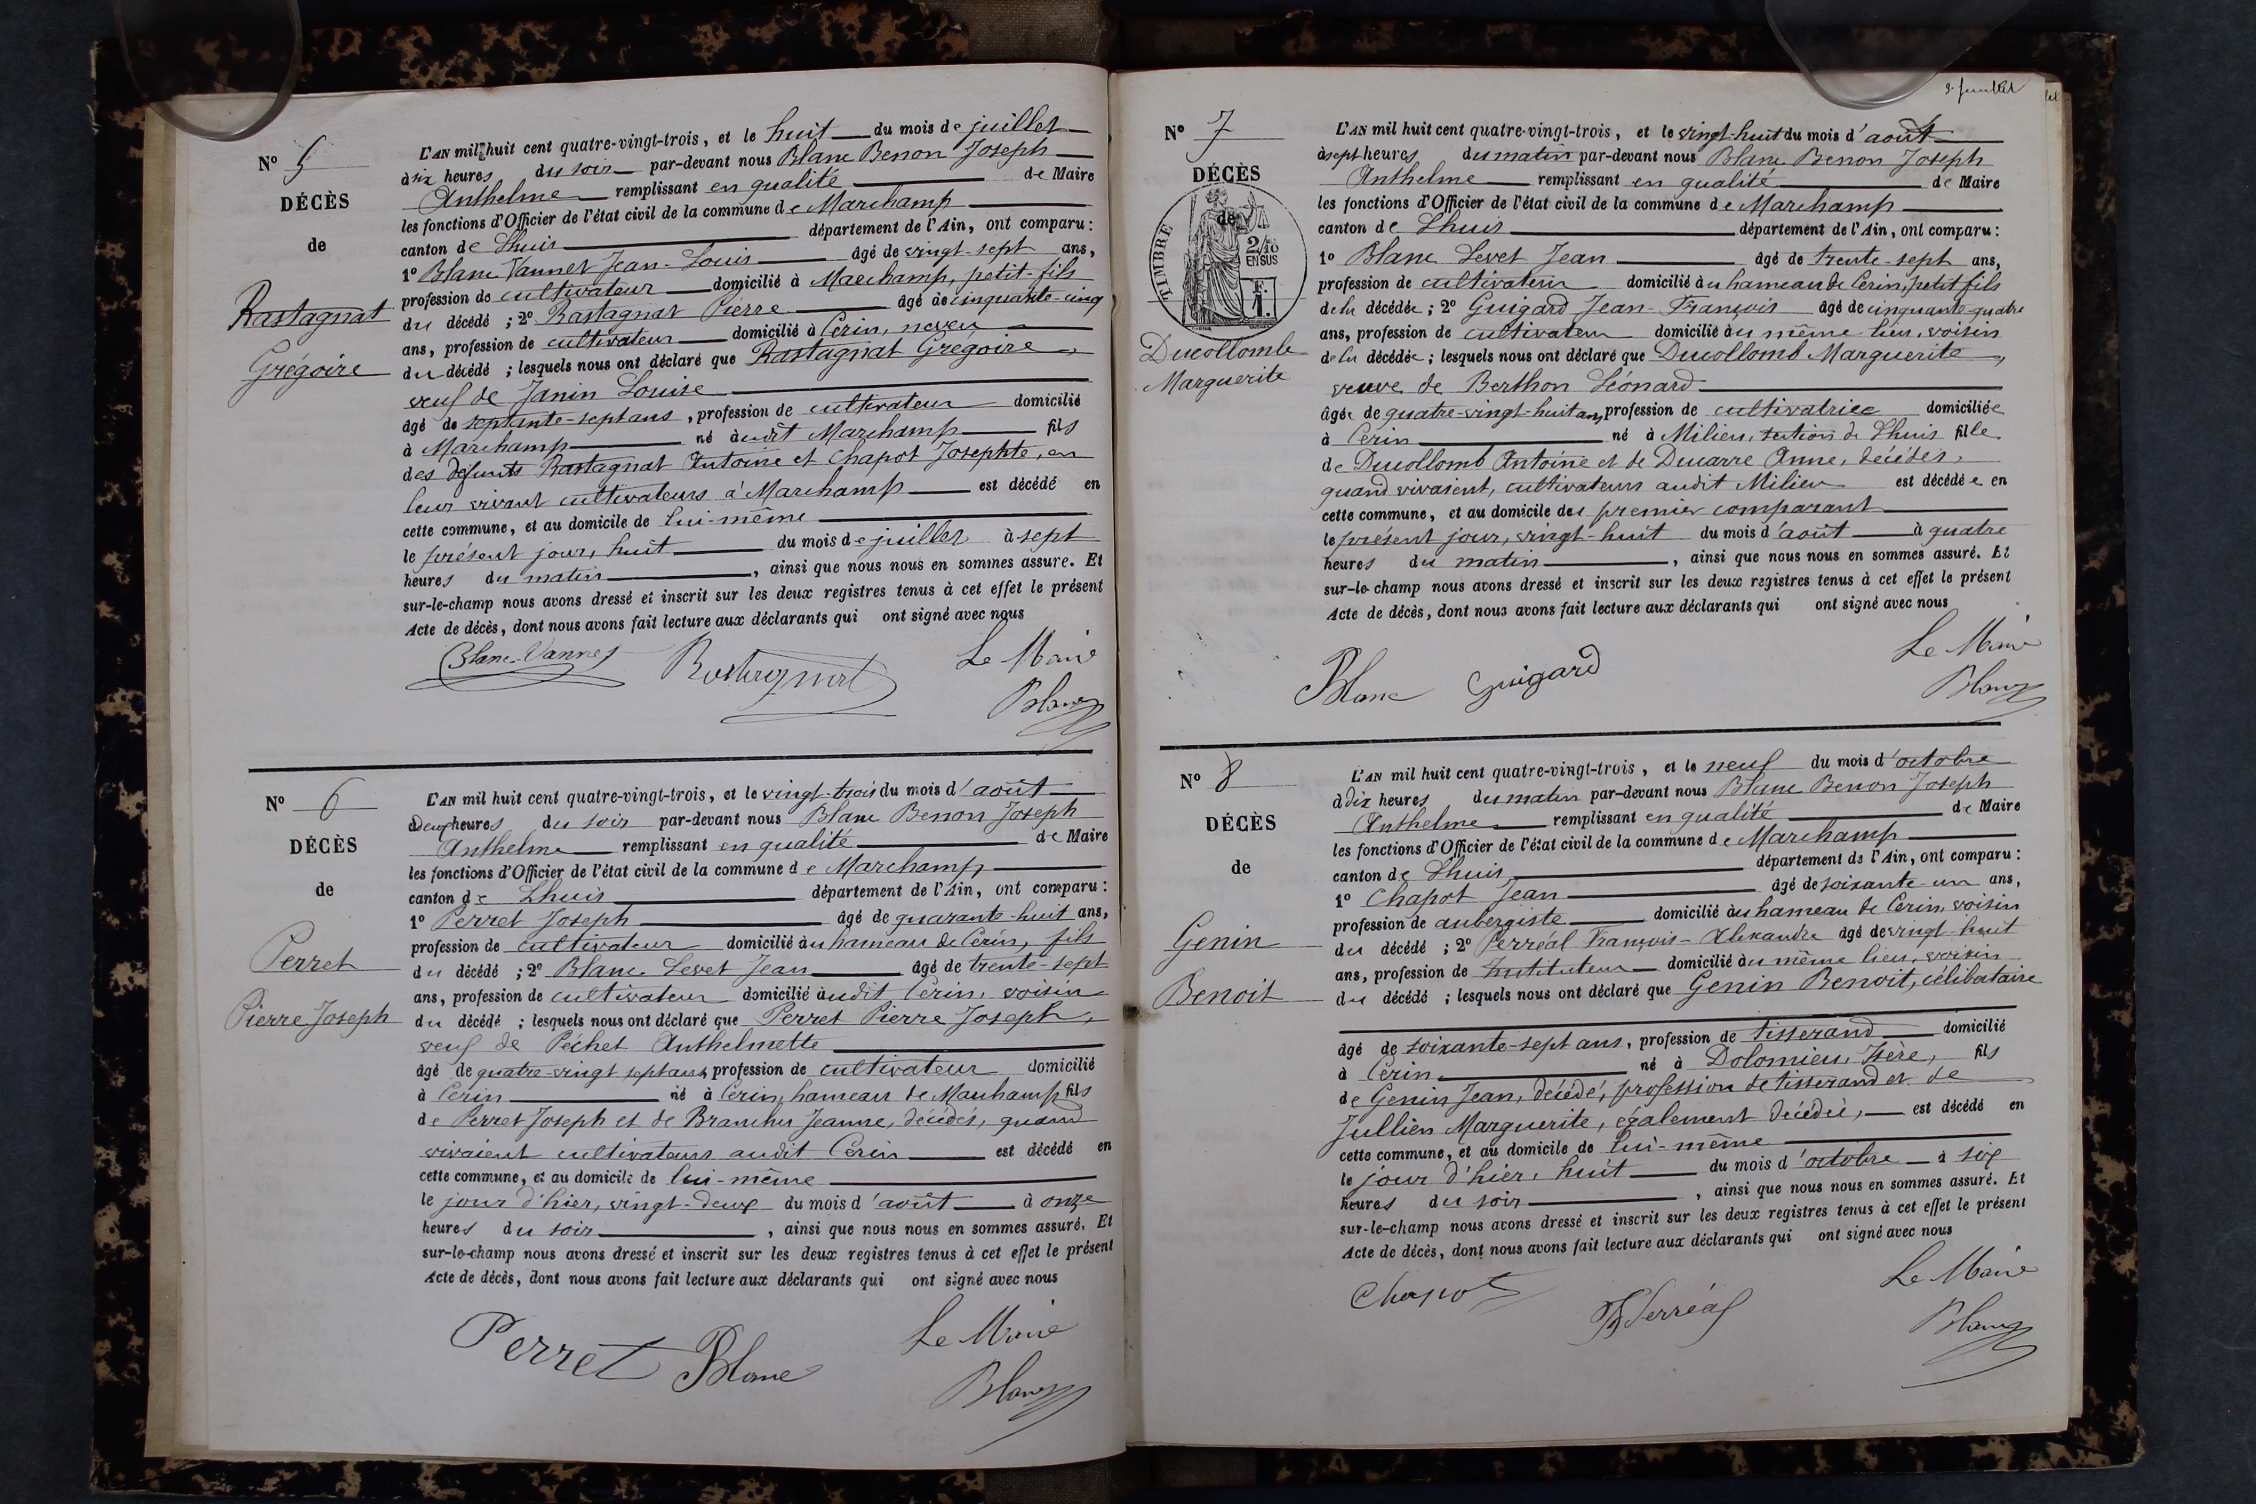 N° 5
DÉCÈS
de
Rastagnat
Grégoire
L'AN mil huit cent quatre-vingt-trois, et le huit du mois de juillet
à six heures du soir par-devant nous Blanc Benon Joseph
Anthelme remplissant en qualité de Maire
les fonctions d'Officier de l'état civil de la commune de Marchamp
canton de Lhuis département de l'Ain, ont comparu :
1° Blanc Vannet Jean-Louis âgé de vingt-sept ans,
profession de cultivateur domicilié à Marchamp, petit-fils
du décédé ; 2° Rastagnat Pierre âgé de cinquante-cinq
ans, profession de cultivateur domicilié à Cerin, neveu
du décédé ; lesquels nous ont déclaré que Rastagnat Grégoire,
veuf de Janin Louise
âgé de septante-sept ans, profession de cultivateur domicilié
à Marchamp né audit Marchamp fils
des défunts Rastagnat Antoine et Chapot Josephte, en
leur vivant cultivateurs à Marchamp est décédé en
cette commune, et au domicile de lui-même
le présent jour, huit du mois de juillet à sept
heures du matin, ainsi que nous nous en sommes assuré. Et
sur-le-champ nous avons dressé et inscrit sur les deux registres tenus à cet effet le présent
Acte de décès, dont nous avons fait lecture aux déclarants qui ont signé avec nous
Blanc-Vannet Rastagnat Le Maire
Blanc
N° 6
DÉCÈS
de
Perret
Pierre Joseph
L'AN mil huit cent quatre-vingt-trois, et le vingt-trois du mois d'août
à deux heures du soir par-devant nous Blanc Benon Joseph
Anthelme remplissant en qualité de Maire
les fonctions d'Officier de l'état civil de la commune de Marchamp,
canton de Lhuis département de l'Ain, ont comparu :
1° Perret Joseph âgé de quarante-huit ans,
profession de cultivateur domicilié au hameau de Cerin, fils
du décédé ; 2° Blanc Levet Jean âgé de trente-sept
ans, profession de cultivateur domicilié audit Cerin, voisin
du décédé ; lesquels nous ont déclaré que Perret Pierre Joseph,
veuf de Péchet Anthelmette
âgé de quatre-vingt sept ans, profession de cultivateur domicilié
à Cerin né à Cerin, hameau de Marchamp fils
de Perret Joseph et de Branchu Jeanne, décédés, quand
vivaient cultivateurs audit Cerin est décédé en
cette commune, et au domicile de lui-même
le jour d'hier, vingt-deux du mois d'août à onze
heures du soir, ainsi que nous nous en sommes assuré. Et
sur-le-champ nous avons dressé et inscrit sur les deux registres tenus à cet effet le présent
Acte de décès, dont nous avons fait lecture aux déclarants qui ont signé avec nous
Perret Blanc Le Maire
Blanc
9. juillet
N° 7
DÉCÈS
de
TIMBRE
2/10
EN SUS
F.
1.
Ducollomb
Marguerite
L'AN mil huit cent quatre-vingt-trois, et le vingt-huit du mois d'août
à sept heures du matin par-devant nous Blanc Benon Joseph
Anthelme remplissant en qualité de Maire
les fonctions d'Officier de l'état civil de la commune de Marchamp
canton de Lhuis département de l'Ain, ont comparu :
1° Blanc Levet Jean âgé de trente-sept ans,
profession de cultivateur domicilié au hameau de Cerin, petit fils
de la décédée ; 2° Guigard Jean-François âgé de cinquante-quatre
ans, profession de cultivateur domicilié au même lieu, voisin
de la décédée ; lesquels nous ont déclaré que Ducollomb Marguerite,
veuve de Berthon Léonard
âgée de quatre-vingt-huit ans, profession de cultivatrice domiciliée
à Cerin né à Milieu, section de Lhuis fille
de Ducollomb Antoine et de Ducarre Anne, décédés,
quand vivaient, cultivateurs audit Milieu est décédée en
cette commune, et au domicile des premier comparant
le présent jour, vingt-huit du mois d'août à quatre
heures du matin, ainsi que nous nous en sommes assuré. Et
sur-le-champ nous avons dressé et inscrit sur les deux registres tenus à cet effet le présent
Acte de décès, dont nous avons fait lecture aux déclarants qui ont signé avec nous
Blanc Guigard Le Maire
Blanc
N° 8
DÉCÈS
de
Genin
Benoit
L'AN mil huit cent quatre-vingt-trois, et le neuf du mois d'octobre
à dix heures du matin par-devant nous Blanc Benon Joseph
Anthelme remplissant en qualité de Maire
les fonctions d'Officier de l'état civil de la commune de Marchamp
canton de Lhuis département de l'Ain, ont comparu :
1° Chapot Jean âgé de soixante-un ans,
profession de aubergiste domicilié au hameau de Cerin, voisin
du décédé ; 2° Perréal François-Alexandre âgé de vingt-huit
ans, profession de Instituteur domicilié au même lieu, voisin
du décédé ; lesquels nous ont déclaré que Genin Benoit, célibataire
âgé de soixante-sept ans, profession de tisserand domicilié
à Cerin né à Dolomieu, Isère, fils
de Genin Jean, décédé, profession de tisserand et de
Jullien Marguerite, également décédée, est décédé en
cette commune, et au domicile de lui-même
le jour d'hier, huit du mois d'octobre à six
heures du soir, ainsi que nous nous en sommes assuré. Et
sur-le-champ nous avons dressé et inscrit sur les deux registres tenus à cet effet le présent
Acte de décès, dont nous avons fait lecture aux déclarants qui ont signé avec nous
Chapot Perréal Le Maire
Blanc